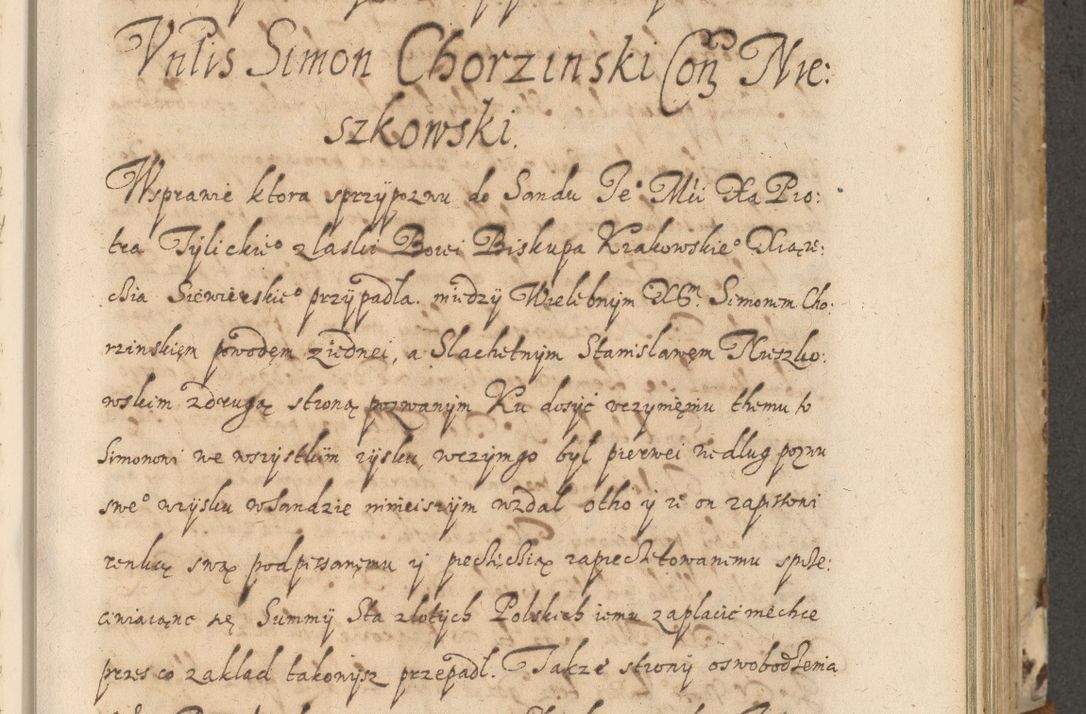 Vnlis Simon Chorzinski Con Nie:
szkowski.
Wsprawie ktora sprzypozwu do Sandu Je° Mci Xa Pio:
tra Tylickie° zlaski Bozei Biskupa Krakowskie° Xiąże:
cia Siewierskie° przypadla. między Wielebnym X Simonem Cho:
rzinskięm powodęm ziednei, a Slachetnym Stanislawęm Nieszko:
wskim zdrugą stroną pozwanym Ku dosyć vczynięniu themu to
Simonowi we wszystkim zysku, wczymgo był pierwei według pozwu
swe° wzysku wSandzie ninieiszym wzdał otho yż on zapisowi
renką swą podpisanęmu y pieczęcią zapieczętowanemu spize:
ciwiaiąnc się Summy Sta zlotych Polskich iemu zaplacić niechce
przes co zaklad takowysz przepadł. Takze strony oswobodzenia